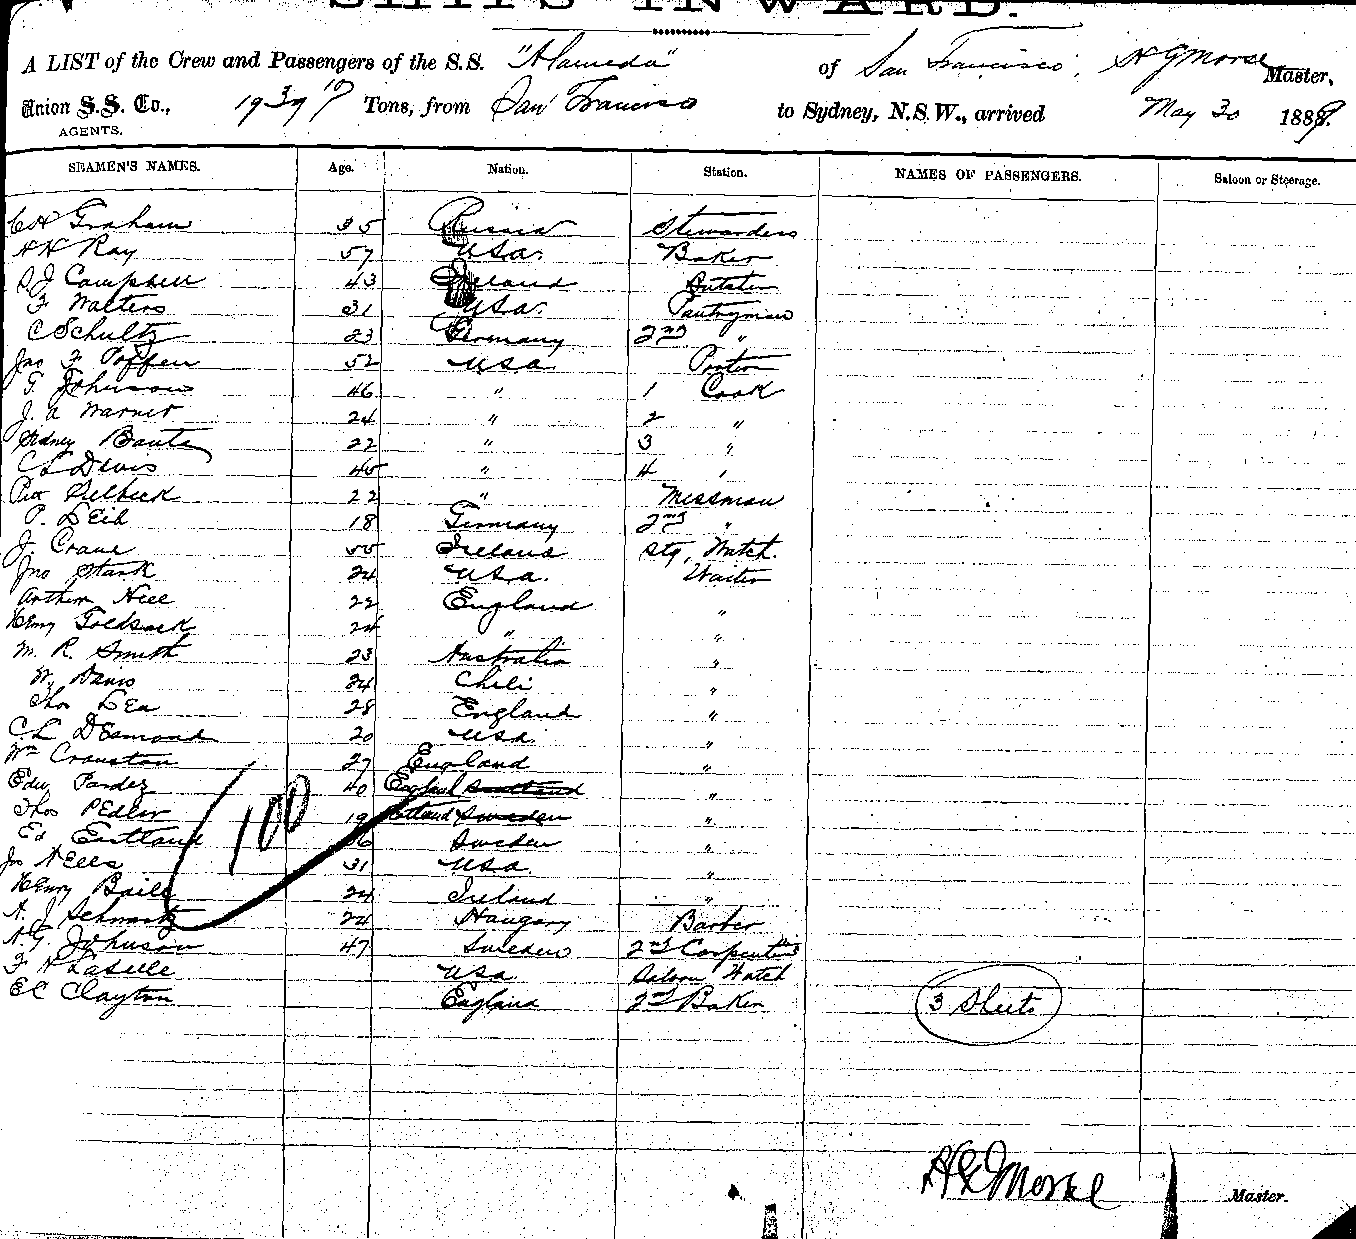 SHIPS INWARD.
A LIST of the Crew and Passengers of the S.S. "Alameda" of San Francisco, H G Morse Master,
Union S.S. Co., 1939 Tons, from San Francisco to Sydney, N.S.W., arrived May 30 1889.
AGENTS.
SEAMEN'S NAMES. Age. Nation. Station. NAMES OF PASSENGERS. Saloon or Steerage.
C H Graham 35 Russia Stewardess
H H Ray 57 USA. Baker
Campbell 43 Ireland
F Walters 31 USA. Pantryman
C Schultz 23 Germany 2nd "
Jno F 52 USA Porter
G Johnson 46 " 1 Cook
J. A Warner 24 " 2 "
Sidney 22 " 3 "
C L Davis 45 " 4 "
22 " Messman
P. LEih 18 Germany 2nd "
J. Crane 55 Ireland Stg, Watch.
Jno Stark 24 USA. Waiter
Arthur Hill 22 England "
Henry Goldsack 24 " "
M. R. Smith 23 Australia "
W. Davis 24 Chili "
Thos LEa 28 England "
C L DEsmond 20 USA "
Wm Cranston 27 England "
Edw 40 England Scotland "
Thos PEdler 19 Sweden "
Ed Eastland 36 Sweden "
Jno NElls 31 USA "
HEnry 24 Ireland "
A. J Schwartz 24 Hungary Barber
A. G. Johnson 47 Sweden 2nd Carpenter
F H LaSelle USA Saloon Watch
EC Clayton England 2nd Baker
100
3 Sheets
H G Morse Master.